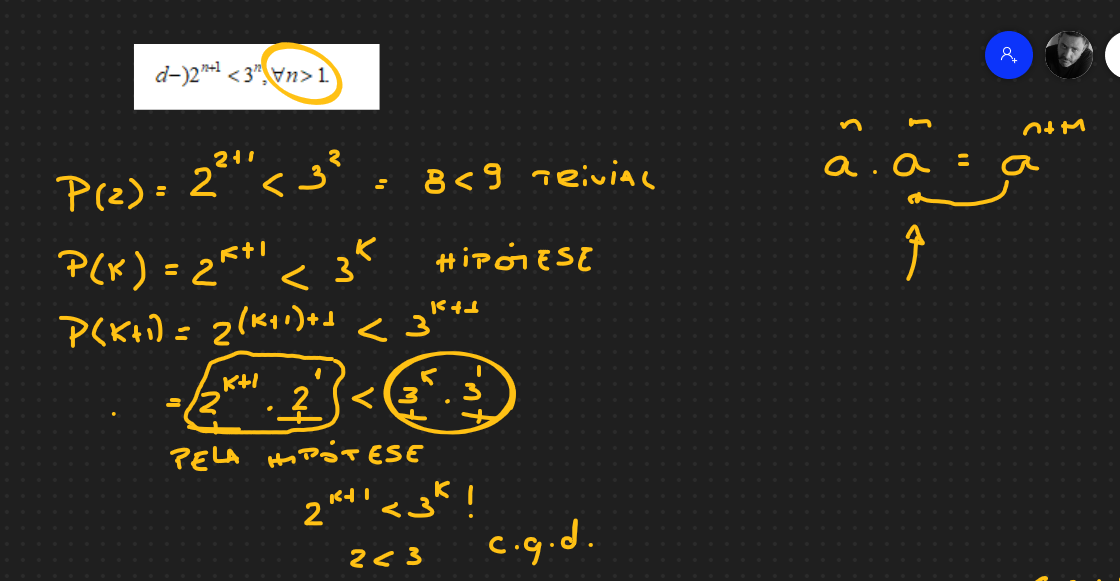 d-) 2^{n+1} < 3^n, ∀n > 1.
P(2) = 2^{2+1} < 3^2 = 8 < 9 TRIVIAL
a^n . a^m = a^{n+m}
P(K) = 2^{K+1} < 3^K HIPÓTESE
P(K+1) = 2^{(K+1)+1} < 3^{K+1}
= 2^{K+1} . 2^1 < 3^K . 3^1
PELA HIPÓTESE
2^{K+1} < 3^K !
2 < 3 c.q.d.